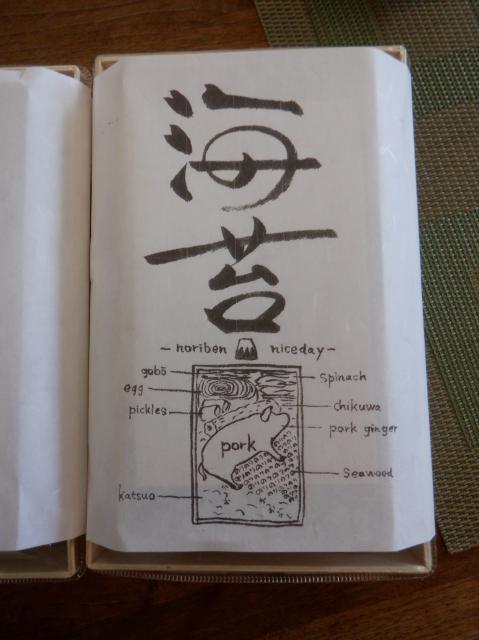 海苔
- noriben niceday -
gobō
spinach
egg
pickles
chikuwa
pork ginger
pork
Seaweed
katsuo